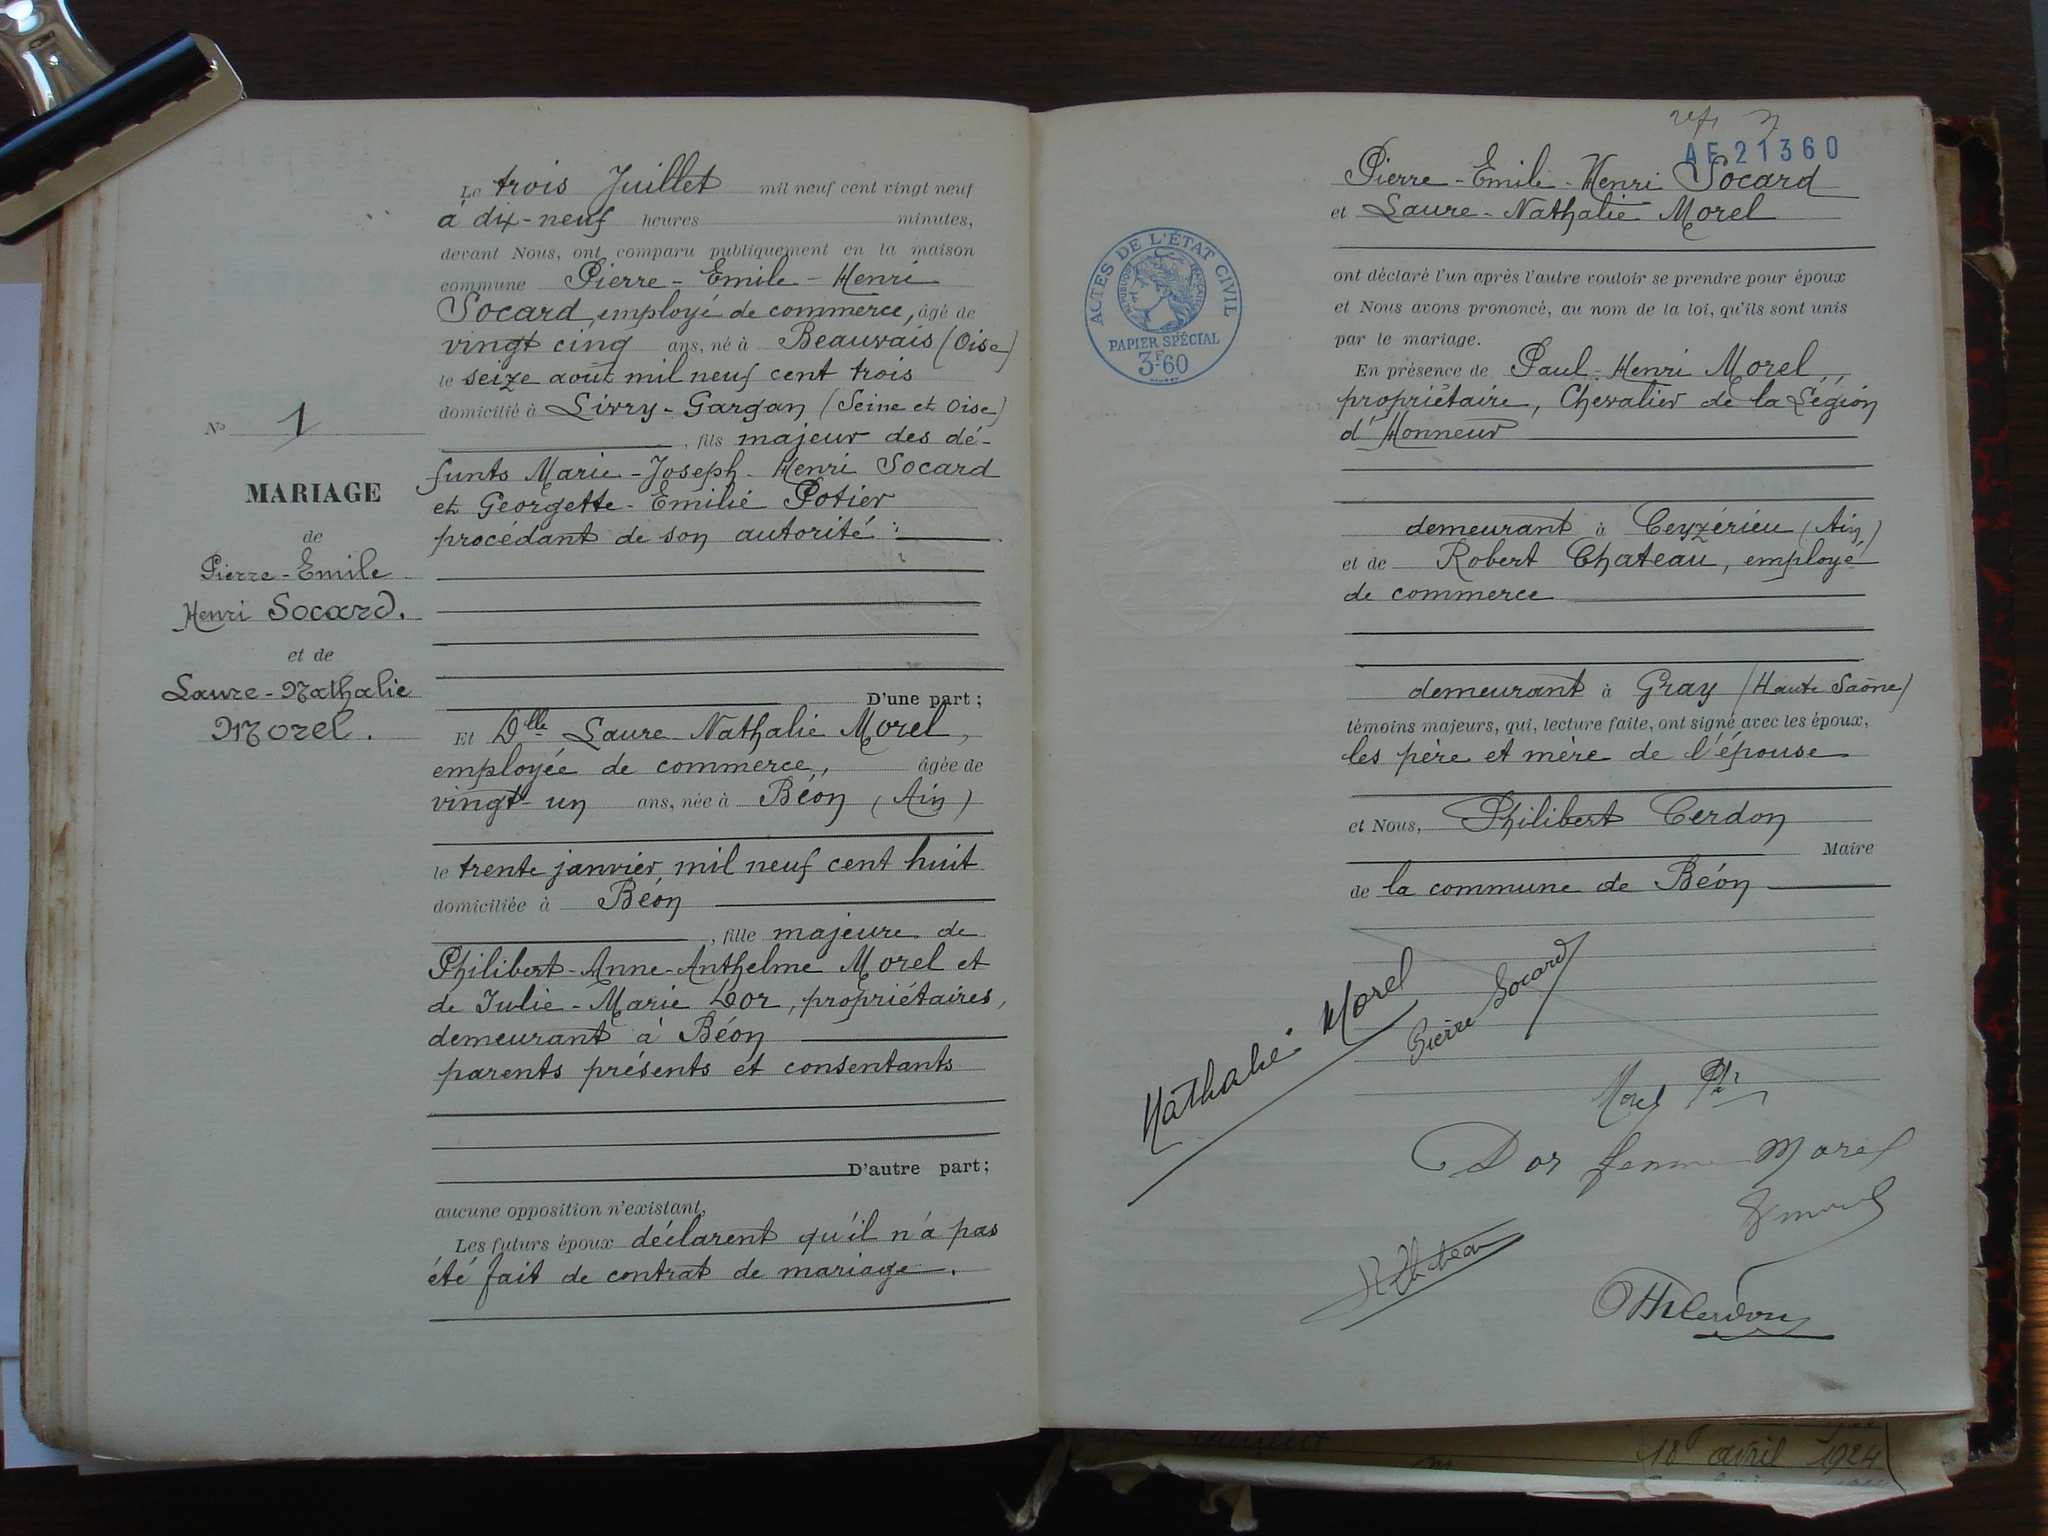 Le trois Juillet mil neuf cent vingt neuf
à dix-neuf heures minutes,
devant Nous, ont comparu publiquement en la maison
commune Pierre-Emile-Henri
Socard, employé de commerce, âgé de
vingt cinq ans, né à Beauvais (Oise)
le seize août mil neuf cent trois
domicilié à Livry-Gargan (Seine et Oise)
, fils majeur des dé-
funts Marie-Joseph-Henri Socard
et Georgette-Emilie Potier
procédant de son autorité
D'une part;
Et Dlle Laure-Nathalie Morel,
employée de commerce, âgée de
vingt-un ans, née à Béon (Ain)
le trente janvier mil neuf cent huit
domiciliée à Béon
, fille majeure de
Philibert-Anne-Anthelme Morel et
de Julie-Marie Dor, propriétaires,
demeurant à Béon
parents présents et consentants
D'autre part;
aucune opposition n'existant,
Les futurs époux déclarent qu'il n'a pas
été fait de contrat de mariage.
No 1
MARIAGE
de
Pierre-Emile
Henri Socard.
et de
Laure-Nathalie
Morel.
AF21360
Pierre-Emile-Henri Socard
et Laure-Nathalie Morel
ont déclaré l'un après l'autre vouloir se prendre pour époux
et Nous avons prononcé, au nom de la loi, qu'ils sont unis
par le mariage.
En présence de Paul-Henri Morel,
propriétaire, Chevalier de la Légion
d'Honneur
demeurant à Ceyzérieu (Ain)
et de Robert Chateau, employé
de commerce
demeurant à Gray (Haute Saône)
témoins majeurs, qui, lecture faite, ont signé avec les époux,
les père et mère de l'épouse
et Nous, Philibert Cerdon
Maire
de la commune de Béon
ACTES DE L'ÉTAT CIVIL
RÉPUBLIQUE FRANÇAISE
PAPIER SPÉCIAL
3F60
Nathalie Morel
Pierre Socard
Morel Ph
Dor femme Morel
Ph Cerdon
18 avril 1924